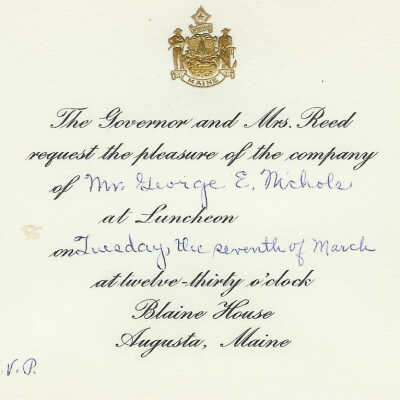 MAINE
The Governor and Mrs. Reed
request the pleasure of the company
of Mr. George E. Nichols
at Luncheon
on Tuesday, the seventh of March
at twelve-thirty o'clock
Blaine House
Augusta, Maine
V.P.